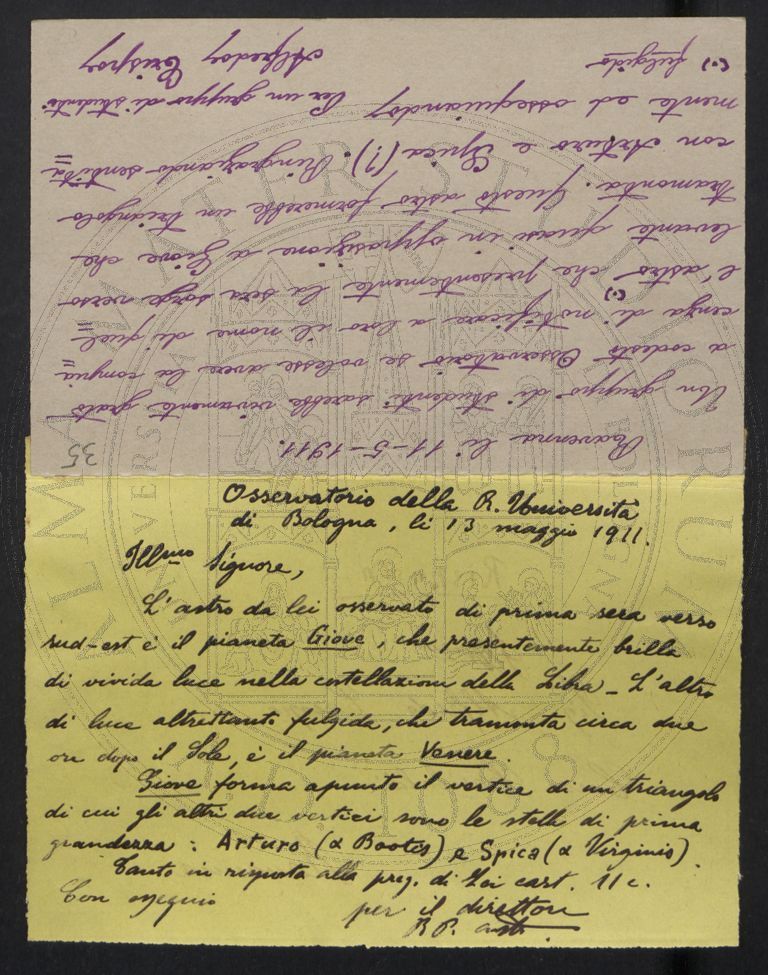 Ravenna li 11-5-1911.
Un gruppo di studenti sarebbe vivamente grato
a codesto Osservatorio se volesse avere la compia=
cenza di notificare a loro il nome di quel=
l'astro (·) che presentemente la sera sorge verso
levante quasi in opposizione a Giove che
tramonta. Questo astro formerebbe un triangolo
con Arturo e Spica (?). Ringraziando sentita=
mente ed ossequiando
Per un gruppo di studenti
(·) fulgido
Alfredo Crispo
35
Osservatorio della R. Università
di Bologna, li 13 maggio 1911.
Ill.mo Signore,
L'astro da lei osservato di prima sera verso
sud-est è il pianeta Giove, che presentemente brilla
di vivida luce nella costellazione della Libra - L'altro
di luce altrettanto fulgida, che tramonta circa due
ore dopo il Sole, è il pianeta Venere.
Giove forma apunto il vertice di un triangolo
di cui gli altri due vertici sono le stelle di prima
grandezza: Arturo (α Bootes) e Spica (α Virginis)
Tanto in risposta alla preg. di Lei cart. 11 c.
Con ossequio
per il direttore
ALMA MATER STUDIORUM
A.D. 1088